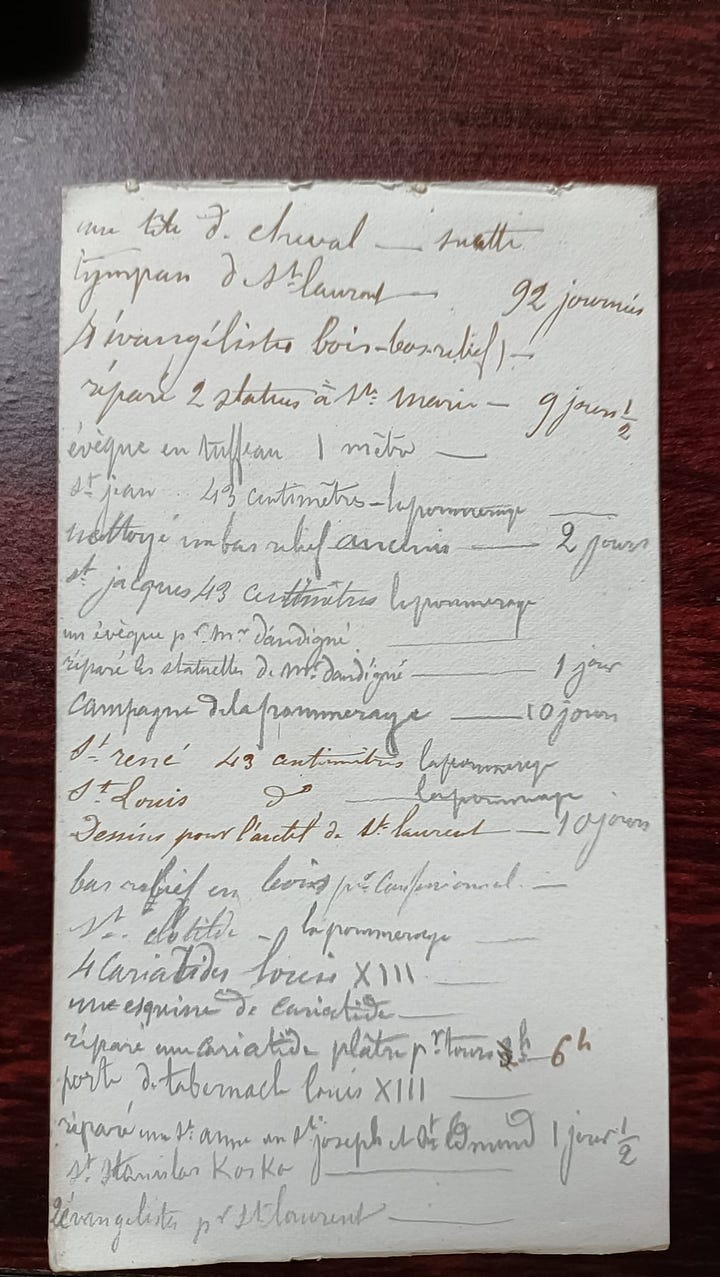 une tête de cheval —
tympan de St laurent — 92 journées
4 évangélistes bois-bas-relief) —
réparé 2 statues à Ste marie — 9 jours 1/2
évèque en tuffeau 1 mètre —
st jean 43 centimètres - lapommeraye —
nettoyé un bas relief ancenis — 2 jours
st jacques 43 centimètres lapommeraye
un évèque pr. Mr dandigné —
réparé les statuettes de Mr dandigné — 1 jour
Campagne de la pommeraye — 10 jours
St rené 43 centimètres lapommeraye
St Louis do — lapommeraye
Dessins pour l'autel de St laurent — 10 jours
bas relief en bois pr Confessionnal. —
Ste Clotilde - la pommeraye —
4 Cariatides louis XIII —
une esquisse de cariatide —
réparé une cariatide plâtre pr tours — 6 h
porte de tabernacle louis XIII —
réparé une Ste anne un St joseph et St Edmond 1 jour 1/2
St Stanislas Kosko —
2 évangelistes pr St laurent —